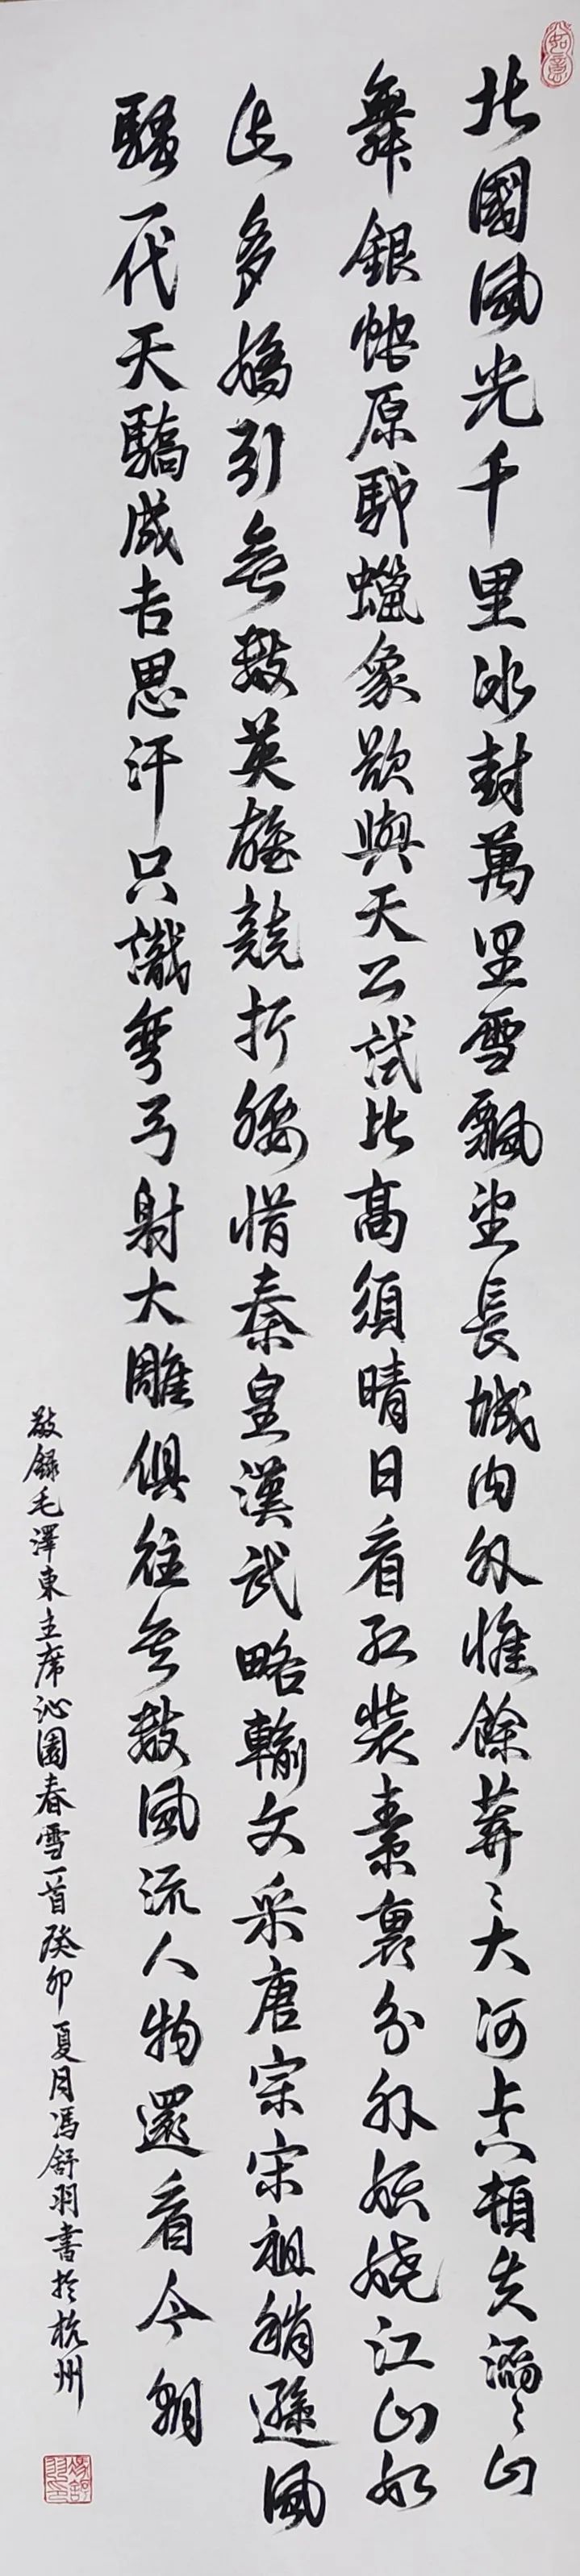 如意
北國風光千里冰封萬里雪飄望長城内外惟餘莽〻大河上下頓失滔〻山
舞銀蛇原馳蠟象欲與天公試比高須晴日看紅裝素裹分外妖嬈江山如
此多嬌引無數英雄競折腰惜秦皇漢武略輸文采唐宗宋祖稍遜風
騷一代天驕成吉思汗只識彎弓射大雕俱往矣數風流人物還看今朝
敬録毛澤東主席沁園春雪一首癸卯夏月馮舒羽書於杭州